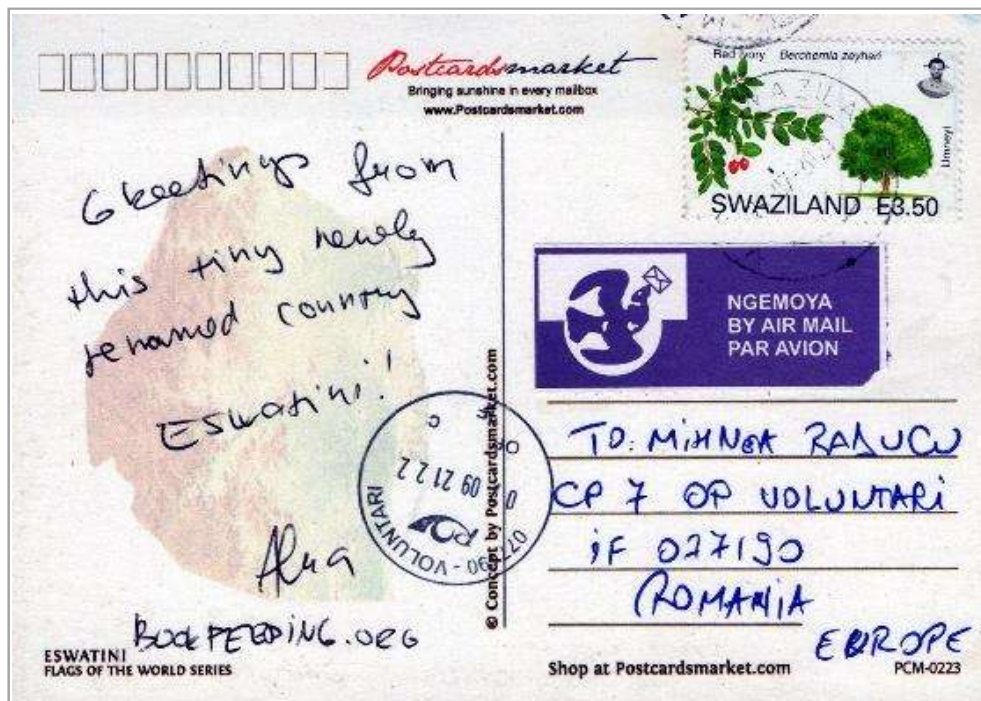 Postcardsmarket
Bringing sunshine in every mailbox
www.Postcardsmarket.com
Red ivory Berchemia zeyheri
Umneyi
SWAZILAND E3.50
Greetings from
this tiny newly
renamed country
Eswatini!
NGEMOYA
BY AIR MAIL
PAR AVION
© Concept by Postcardsmarket.com
VOLUNTARI
09 21 2 2
TO: MIHNEA RADUCU
CP 7 OP VOLUNTARI
IF 077190
ROMANIA
EUROPE
ESWATINI
FLAGS OF THE WORLD SERIES
Shop at Postcardsmarket.com
PCM-0223